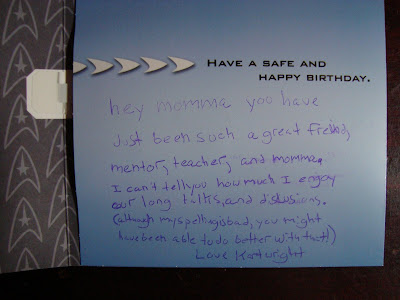 HAVE A SAFE AND
HAPPY BIRTHDAY.
hey momma you have
Just been such a great freind,
mentor, teacher, and momma.
I can't tell you how much I engoy
our long talks, and disusions.
(although my spelling is bad, you might
have been able to do better with that!)
Love Kartwright